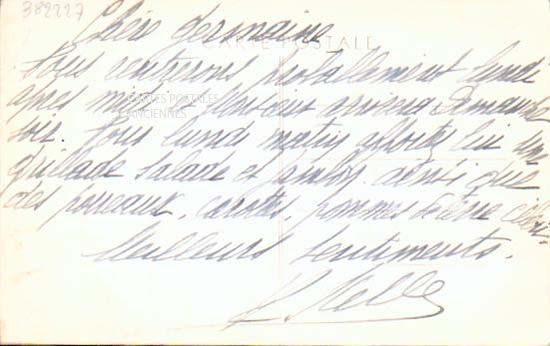 382227
Chère Germaine
CARTE POSTALE
Nous rentrerons probablement lundi
après midi. Monsieur arrivera Dimanche
CARTES POSTALES
ANCIENNES
soir. Pour lundi matin apportez lui un
grillade salade et jambon ainsi que
des poireaux, carottes, pommes de terre céleri
Meilleurs sentiments.